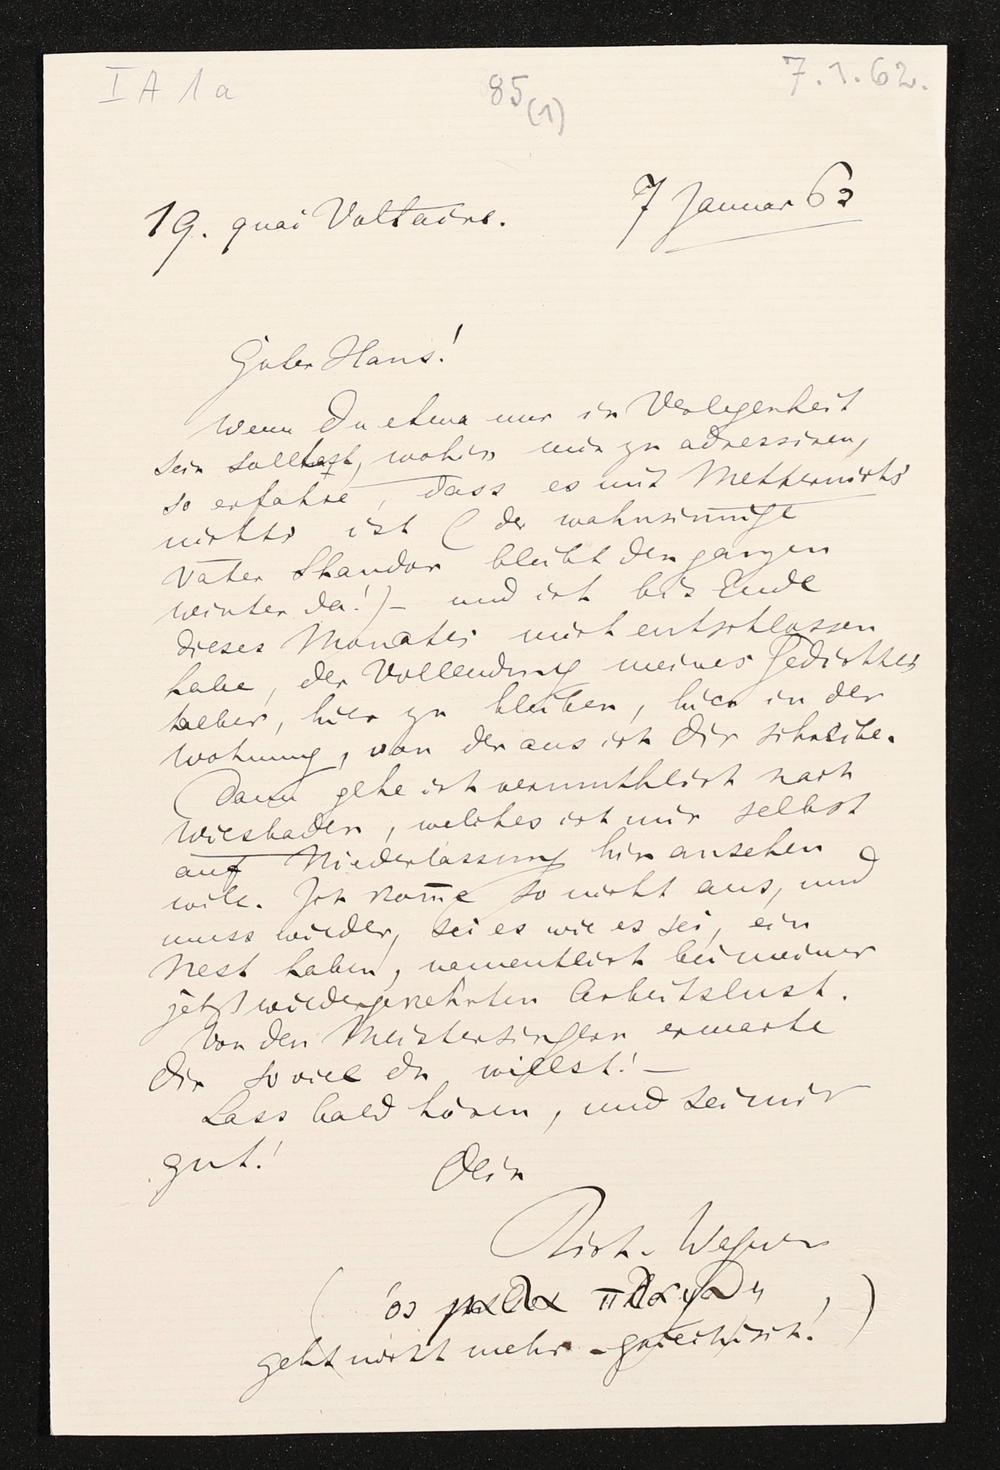 I A 1a
85 (1)
7.1.62.
19. quai Voltaire.
7 Januar 62
Guter Hans!
Wenn Du etwa nur in Verlegenheit
sein solltest, wohin mir zu adressiren,
so erfahre, dass es mit Metternichs
nichts ist (der wahnsinnige
Vater Shandor bleibt den ganzen
Winter da!) – und ich bis Ende
dieses Monates mich entschlossen
habe, der Vollendung meines Gedichtes
halber, hier zu bleiben, hier in der
Wohnung, von der aus ich Dir schreibe.
Dann gehe ich vermuthlich nach
Wiesbaden, welches ich mir selbst
auf Niederlassung hin ansehen
will. Ich kom̄e so nicht aus, und
muss wieder, sei es wie es sei, ein
Nest haben, namentlich bei meiner
jetzt wiedergekehrten Arbeitslust.
Von den Meistersingern erwarte
Dir so viel du willst! –
Lass bald hören, und sei mir
gut!
Dein
Rich. Wagner
(ὃς μαλα
geht nicht mehr – griechisch!)